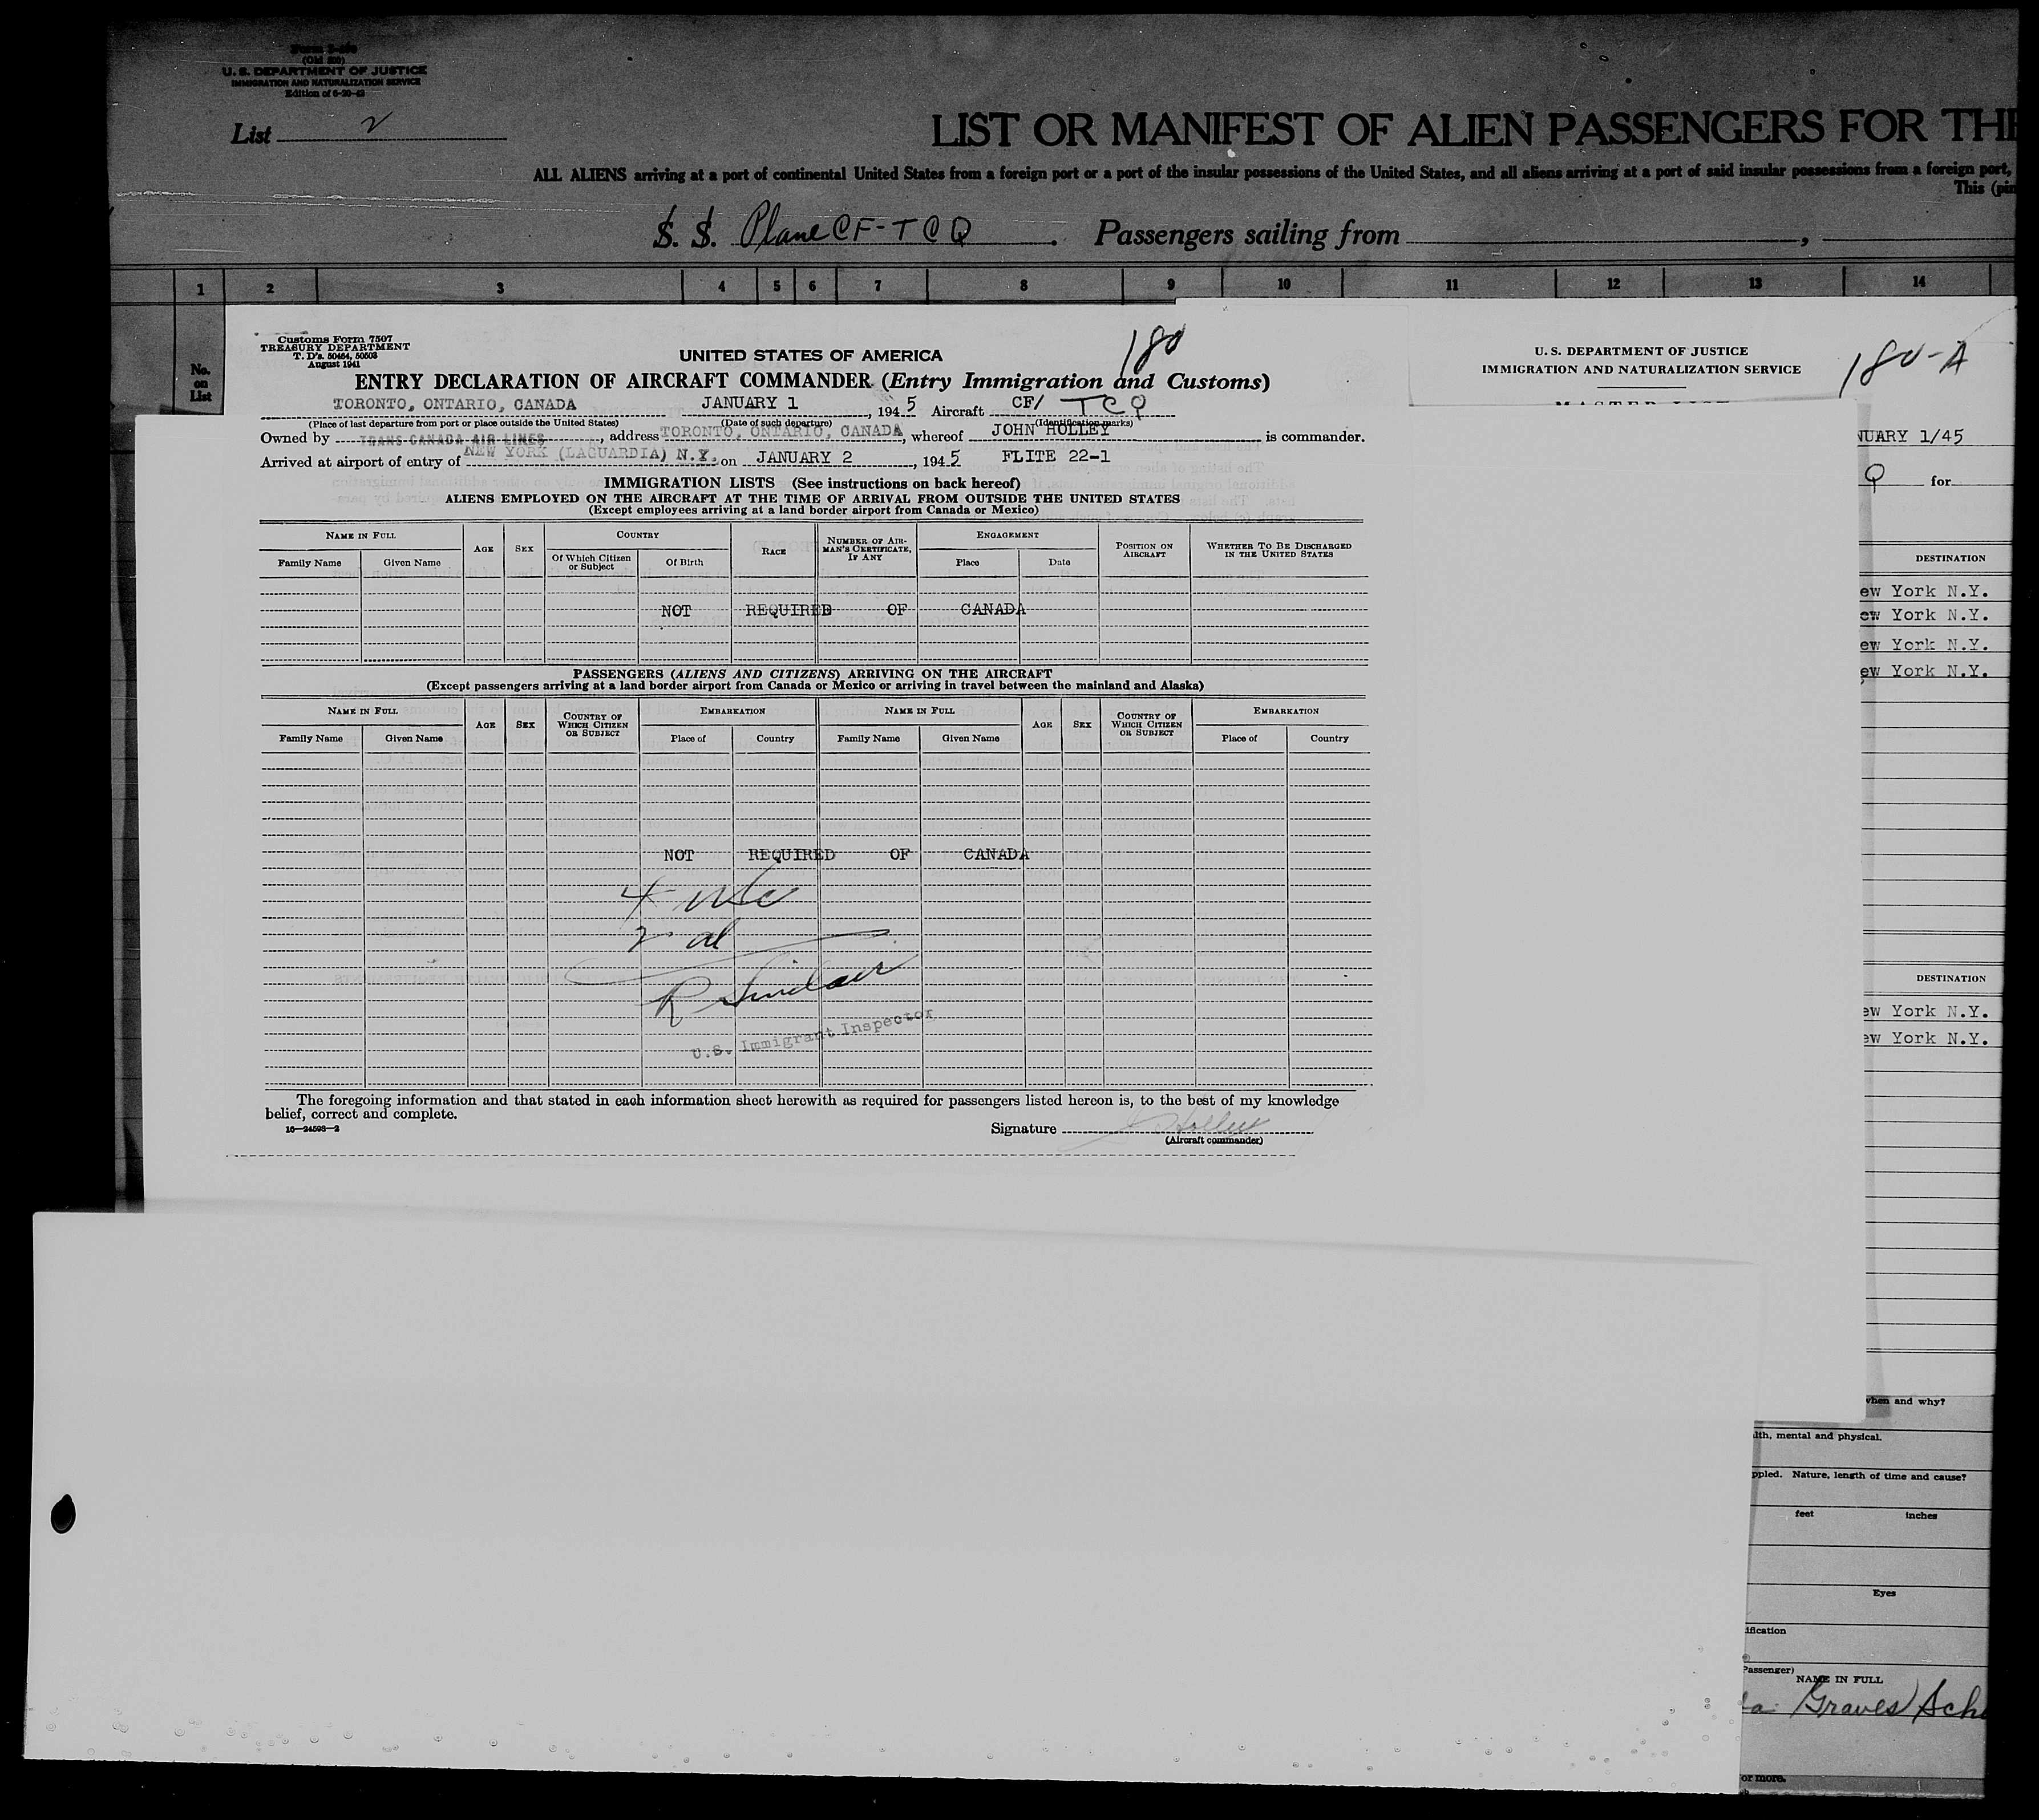 Form I-416
(Old 500)
U. S. DEPARTMENT OF JUSTICE
IMMIGRATION AND NATURALIZATION SERVICE
Edition of 6-20-42
List 2
LIST OR MANIFEST OF ALIEN PASSENGERS FOR THE
ALL ALIENS arriving at a port of continental United States from a foreign port or a port of the insular possessions of the United States, and all aliens arriving at a port of said insular possessions from a foreign port,
This (pin
S. S. Plane CF-TCQ . Passengers sailing from ,
1 2 3 4 5 6 7 8 9 10 11 12 13 14
No.
on
List
Customs Form 7507
TREASURY DEPARTMENT
T. D's. 50464, 50503
August 1941
UNITED STATES OF AMERICA
180
ENTRY DECLARATION OF AIRCRAFT COMMANDER (Entry Immigration and Customs)
TORONTO, ONTARIO, CANADA JANUARY 1 , 1945 Aircraft CF/ TCQ
(Place of last departure from port or place outside the United States) (Date of such departure) (Identification marks)
Owned by TRANS CANADA AIR LINES , address TORONTO, ONTARIO, CANADA , whereof JOHN HOLLEY is commander.
Arrived at airport of entry of NEW YORK (LAGUARDIA) N.Y. on JANUARY 2 , 1945 FLITE 22-1
IMMIGRATION LISTS (See instructions on back hereof)
ALIENS EMPLOYED ON THE AIRCRAFT AT THE TIME OF ARRIVAL FROM OUTSIDE THE UNITED STATES
(Except employees arriving at a land border airport from Canada or Mexico)
NAME IN FULL AGE SEX COUNTRY RACE NUMBER OF AIRMAN'S CERTIFICATE, IF ANY ENGAGEMENT POSITION ON AIRCRAFT WHETHER TO BE DISCHARGED IN THE UNITED STATES
Family Name Given Name Of Which Citizen or Subject Of Birth Place Date
NOT REQUIRED OF CANADA
PASSENGERS (ALIENS AND CITIZENS) ARRIVING ON THE AIRCRAFT
(Except passengers arriving at a land border airport from Canada or Mexico or arriving in travel between the mainland and Alaska)
NAME IN FULL AGE SEX COUNTRY OF WHICH CITIZEN OR SUBJECT EMBARKATION NAME IN FULL AGE SEX COUNTRY OF WHICH CITIZEN OR SUBJECT EMBARKATION
Family Name Given Name Place of Country Family Name Given Name Place of Country
NOT REQUIRED OF CANADA
4 usc
2 al
R Sinclair
U.S. Immigrant Inspector
The foregoing information and that stated in each information sheet herewith as required for passengers listed hereon is, to the best of my knowledge
belief, correct and complete.
16—24598-2
Signature J Holley
(Aircraft commander)
U. S. DEPARTMENT OF JUSTICE
IMMIGRATION AND NATURALIZATION SERVICE
180-A
NUARY 1/45
Q for
DESTINATION
ew York N.Y.
ew York N.Y.
ew York N.Y.
ew York N.Y.
DESTINATION
ew York N.Y.
ew York N.Y.
when and why?
lth, mental and physical.
ppled. Nature, length of time and cause?
feet inches
Eyes
ification
Passenger)
NAME IN FULL
da Graves Sch
or more.